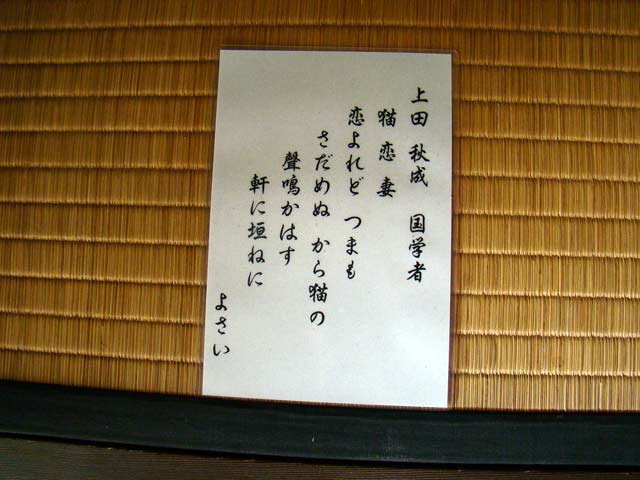 上田 秋成 国学者
猫 恋 妻
恋よれど つまも
さだめぬ から猫の
聲鳴かはす
軒に垣ねに
よさい